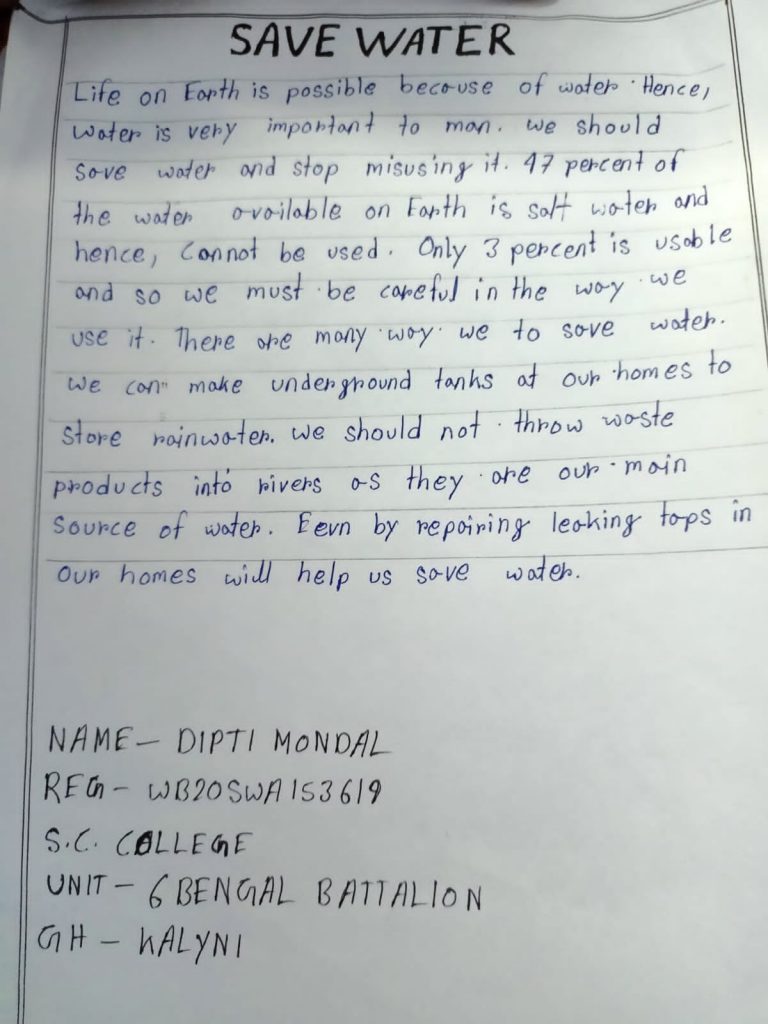 SAVE WATER
Life on Earth is possible because of water. Hence,
Water is very important to man. we should
save water and stop misusing it. 97 percent of
the water available on Earth is salt water and
hence, Cannot be used. Only 3 percent is usable
and so we must be careful in the way we
use it. There are many way we to save water.
We can make underground tanks at our homes to
store rainwater. we should not throw waste
products into rivers as they are our main
Source of water. Eevn by repairing leaking taps in
our homes will help us save water.
NAME - DIPTI MONDAL
REG - WB20SWA153619
S.C. COLLEGE
UNIT - 6 BENGAL BATTALION
GH - KALYNI